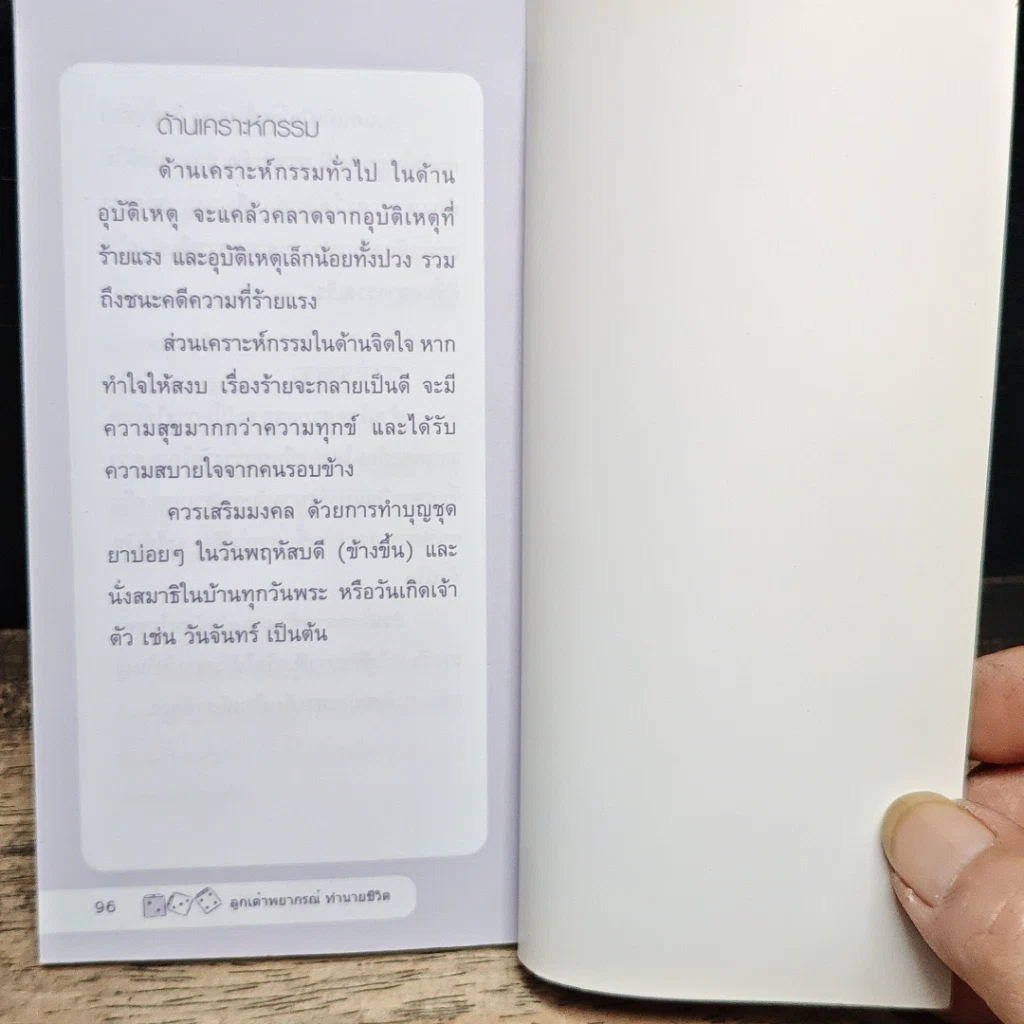 ด้านเคราะห์กรรม
ด้านเคราะห์กรรมทั่วไป ในด้าน
อุบัติเหตุ จะแคล้วคลาดจากอุบัติเหตุที่
ร้ายแรง และอุบัติเหตุเล็กน้อยทั้งปวง รวม
ถึงชนะคดีความที่ร้ายแรง
ส่วนเคราะห์กรรมในด้านจิตใจ หาก
ทำใจให้สงบ เรื่องร้ายจะกลายเป็นดี จะมี
ความสุขมากกว่าความทุกข์ และได้รับ
ความสบายใจจากคนรอบข้าง
ควรเสริมมงคล ด้วยการทำบุญชุด
ยาบ่อยๆ ในวันพฤหัสบดี (ข้างขึ้น) และ
นั่งสมาธิในบ้านทุกวันพระ หรือวันเกิดเจ้า
ตัว เช่น วันจันทร์ เป็นต้น
96 ลูกเต๋าพยากรณ์ ทำนายชีวิต